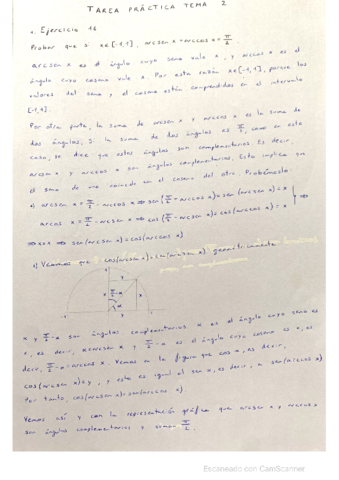 TAREA PRÁCTICA TEMA 2
1. Ejercicio 16
Probar que si x∈[-1,1], arcsen x + arccos x = π/2
arcsen x es el ángulo cuyo seno vale x, y arccos x es el
ángulo cuyo coseno vale x. Por esta razón x∈[-1,1], porque los
valores del seno y el coseno están comprendidos en el intervalo
[-1,1].
Por otra parte, la suma de arcsen x y arccos x es la suma de
dos ángulos. Si la suma de dos ángulos es π/2, como en este
caso, se dice que estos ángulos son complementarios. Es decir,
arcsen x y arccos x son ángulos complementarios. Esto implica que
el seno de uno coincide con el coseno del otro. Probémoslo:
arcsen x = π/2 - arccos x ⇒ sen(π/2 - arccos x) = sen(arcsen x) = x
arccos x = π/2 - arcsen x ⇒ cos(π/2 - arcsen x) = cos(arccos x) = x
⇒ x=x ⇒
Veamos que cos(arcsen x) = sen(arccos x) geométricamente
y π/2-α son ángulos complementarios. α es el ángulo cuyo seno es
x, es decir, α=arcsen x y π/2-α es el ángulo cuyo coseno es x, es
decir, π/2-α = arccos x. Vemos en la figura que cos α, es decir,
cos(arcsen x) = y, y esto es igual al sen α, es decir, a sen(arccos x)
Por tanto, cos(arcsen x) = sen(arccos x).
Vemos así y con la representación gráfica que arcsen x y arccos x
son ángulos complementarios y suman π/2.
Escaneado con CamScanner